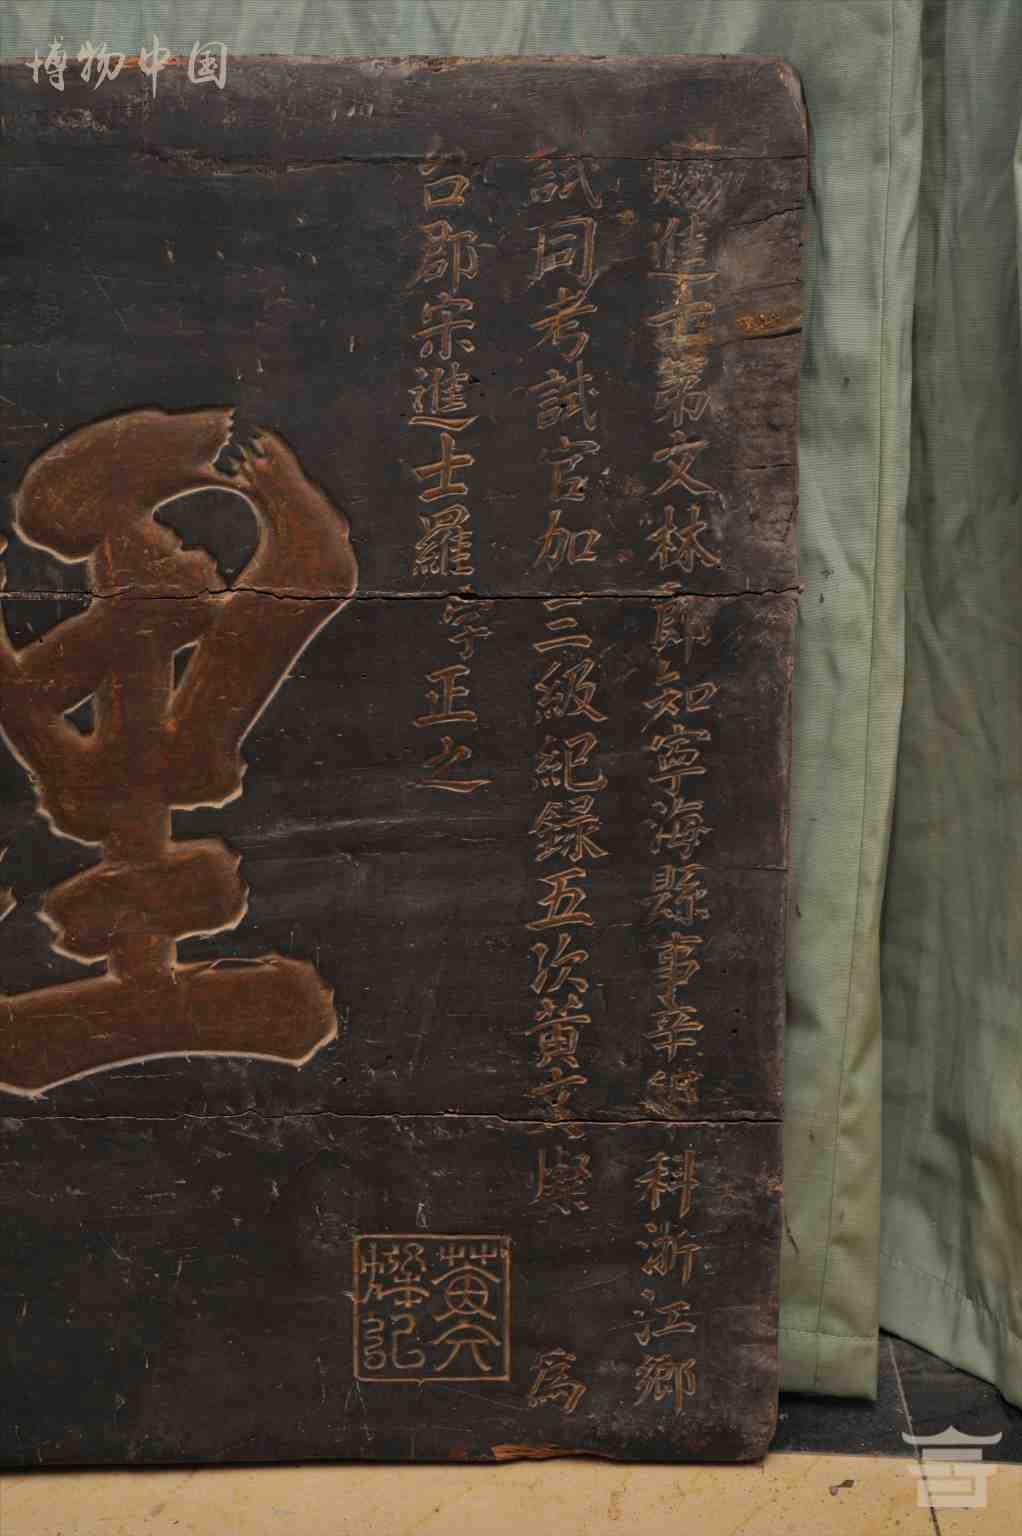 賜進士第文林郎知寧海縣事辛科浙江鄉
試同考試官加三級紀錄五次黃為
台郡宋進士羅字正之
黃記
博物中国